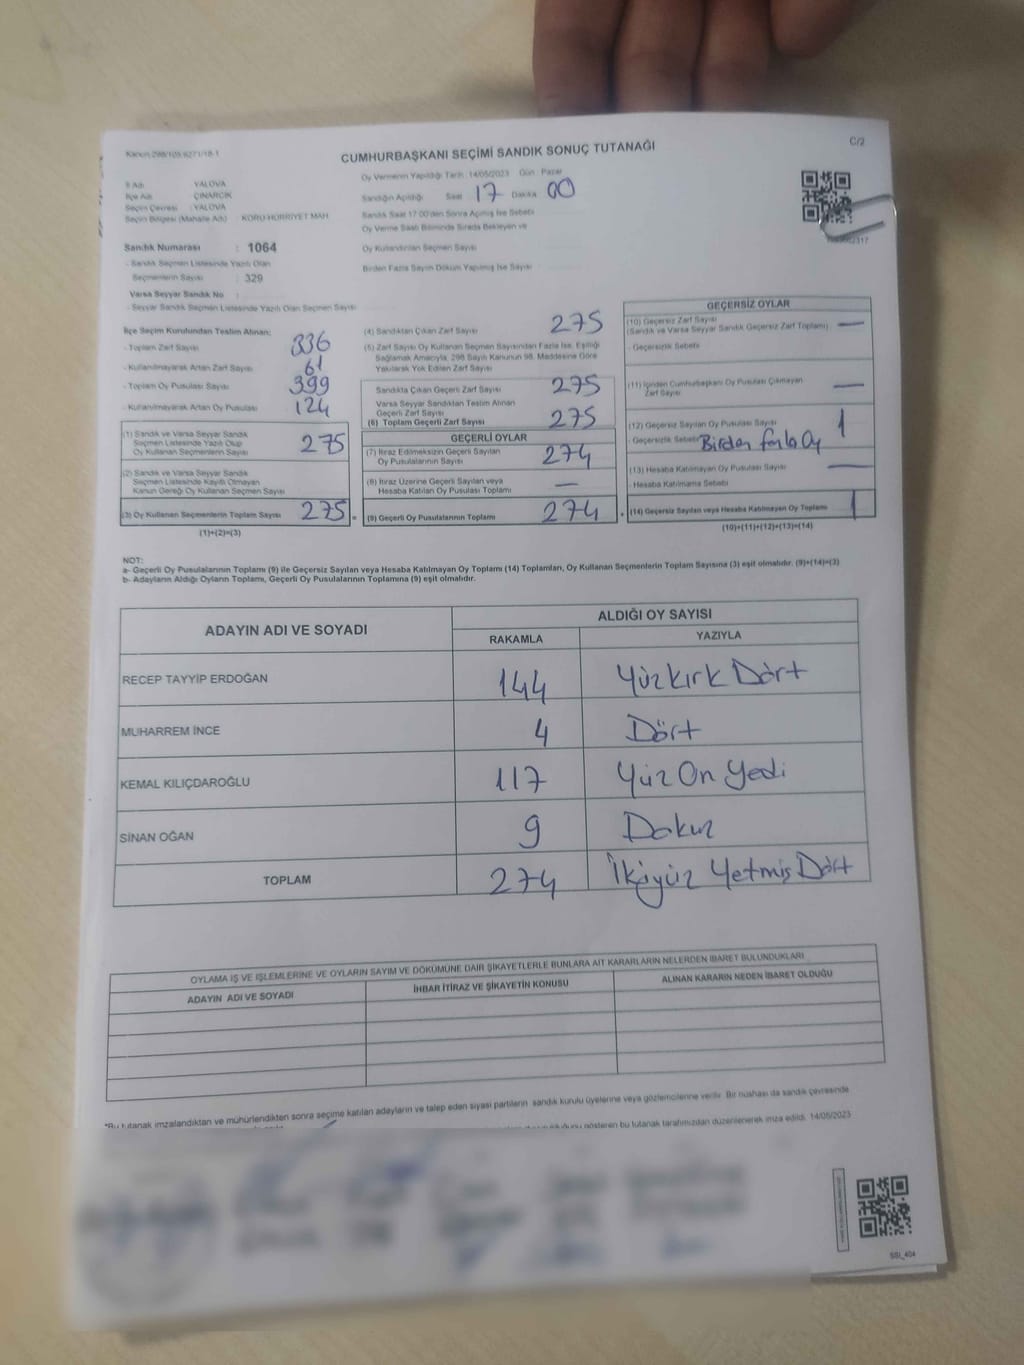 Kanun:298/105 6271/18-1
C/2
CUMHURBAŞKANI SEÇİMİ SANDIK SONUÇ TUTANAĞI
İl Adı YALOVA
İlçe Adı ÇINARCIK
Seçim Çevresi : YALOVA
Seçim Bölgesi (Mahalle Adı) KORU HÜRRİYET MAH
Sandık Numarası : 1064
- Sandık Seçmen Listesinde Yazılı Olan
Seçmenlerin Sayısı : 329
Varsa Seyyar Sandık No
- Seyyar Sandık Seçmen Listesinde Yazılı Olan Seçmen Sayısı
Oy Vermenin Yapıldığı Tarih :14/05/2023 Gün : Pazar
Sandığın Açıldığı Saat 17 Dakika 00
Sandık Saat 17:00'den Sonra Açılmış İse Sebebi
Oy Verme Saati Bitiminde Sırada Bekleyen ve
Oy Kullandırılan Seçmen Sayısı
Birden Fazla Sayım Döküm Yapılmış İse Sayısı
İlçe Seçim Kurulundan Teslim Alınan;
- Toplam Zarf Sayısı 336
- Kullanılmayarak Artan Zarf Sayısı 61
- Toplam Oy Pusulası Sayısı 399
- Kullanılmayarak Artan Oy Pusulası 124
(1) Sandık ve Varsa Seyyar Sandık
Seçmen Listesinde Yazılı Olup
Oy Kullanan Seçmenlerin Sayısı 275
(2) Sandık ve Varsa Seyyar Sandık
Seçmen Listesinde Kayıtlı Olmayan
Kanun Gereği Oy Kullanan Seçmen Sayısı
(3) Oy Kullanan Seçmenlerin Toplam Sayısı 275 =
(1)+(2)=(3)
(4) Sandıktan Çıkan Zarf Sayısı 275
(5) Zarf Sayısı Oy Kullanan Seçmen Sayısından Fazla İse, Eşitliği
Sağlamak Amacıyla, 298 Sayılı Kanunun 98. Maddesine Göre
Yakılarak Yok Edilen Zarf Sayısı
Sandıkta Çıkan Geçerli Zarf Sayısı 275
Varsa Seyyar Sandıktan Teslim Alınan
Geçerli Zarf Sayısı
(6) Toplam Geçerli Zarf Sayısı 275
GEÇERLİ OYLAR
(7) İtiraz Edilmeksizin Geçerli Sayılan
Oy Pusulalarının Sayısı 274
(8) İtiraz Üzerine Geçerli Sayılan veya
Hesaba Katılan Oy Pusulası Toplamı —
(9) Geçerli Oy Pusulalarının Toplamı 274 +
GEÇERSİZ OYLAR
(10) Geçersiz Zarf Sayısı
(Sandık ve Varsa Seyyar Sandık Geçersiz Zarf Toplamı) —
- Geçersizlik Sebebi
(11) İçinden Cumhurbaşkanı Oy Pusulası Çıkmayan
Zarf Sayısı —
(12) Geçersiz Sayılan Oy Pusulası Sayısı 1
- Geçersizlik Sebebi Birden fazla Oy
(13) Hesaba Katılmayan Oy Pusulası Sayısı —
- Hesaba Katılmama Sebebi
(14) Geçersiz Sayılan veya Hesaba Katılmayan Oy Toplamı 1
(10)+(11)+(12)+(13)=(14)
NOT:
a- Geçerli Oy Pusulalarının Toplamı (9) ile Geçersiz Sayılan veya Hesaba Katılmayan Oy Toplamı (14) Toplamları, Oy Kullanan Seçmenlerin Toplam Sayısına (3) eşit olmalıdır. (9)+(14)=(3)
b- Adayların Aldığı Oyların Toplamı, Geçerli Oy Pusulalarının Toplamına (9) eşit olmalıdır.
ADAYIN ADI VE SOYADI
ALDIĞI OY SAYISI
RAKAMLA YAZIYLA
RECEP TAYYİP ERDOĞAN 144 Yüzkırk Dört
MUHARREM İNCE 4 Dört
KEMAL KILIÇDAROĞLU 117 Yüz On Yedi
SİNAN OĞAN 9 Dokuz
TOPLAM 274 İkiyüz Yetmiş Dört
OYLAMA İŞ VE İŞLEMLERİNE VE OYLARIN SAYIM VE DÖKÜMÜNE DAİR ŞİKAYETLERLE BUNLARA AİT KARARLARIN NELERDEN İBARET BULUNDUKLARI
ADAYIN ADI VE SOYADI İHBAR İTİRAZ VE ŞİKAYETİN KONUSU ALINAN KARARIN NEDEN İBARET OLDUĞU
*Bu tutanak imzalandıktan ve mühürlendikten sonra seçime katılan adayların ve talep eden siyasi partilerin sandık kurulu üyelerine veya gözlemcilerine verilir. Bir nüshası da sandık çevresinde
gösteren bu tutanak tarafımızdan düzenlenerek imza edildi. 14/05/2023
SSI_404